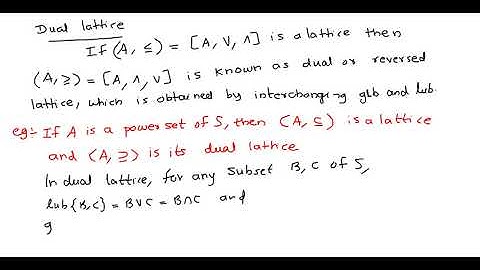 Dual lattice
If (A, ≤) = [A, V, Λ] is a lattice then
(A, ≥) = [A, Λ, V] is known as dual or reversed
lattice, which is obtained by interchanging glb and lub.
eg:- If A is a power set of S, then (A, ⊆) is a lattice
and (A, ⊇) is its dual lattice
In dual lattice, for any subset B, C of S,
lub{B,C} = B∨C = B∩C and
g